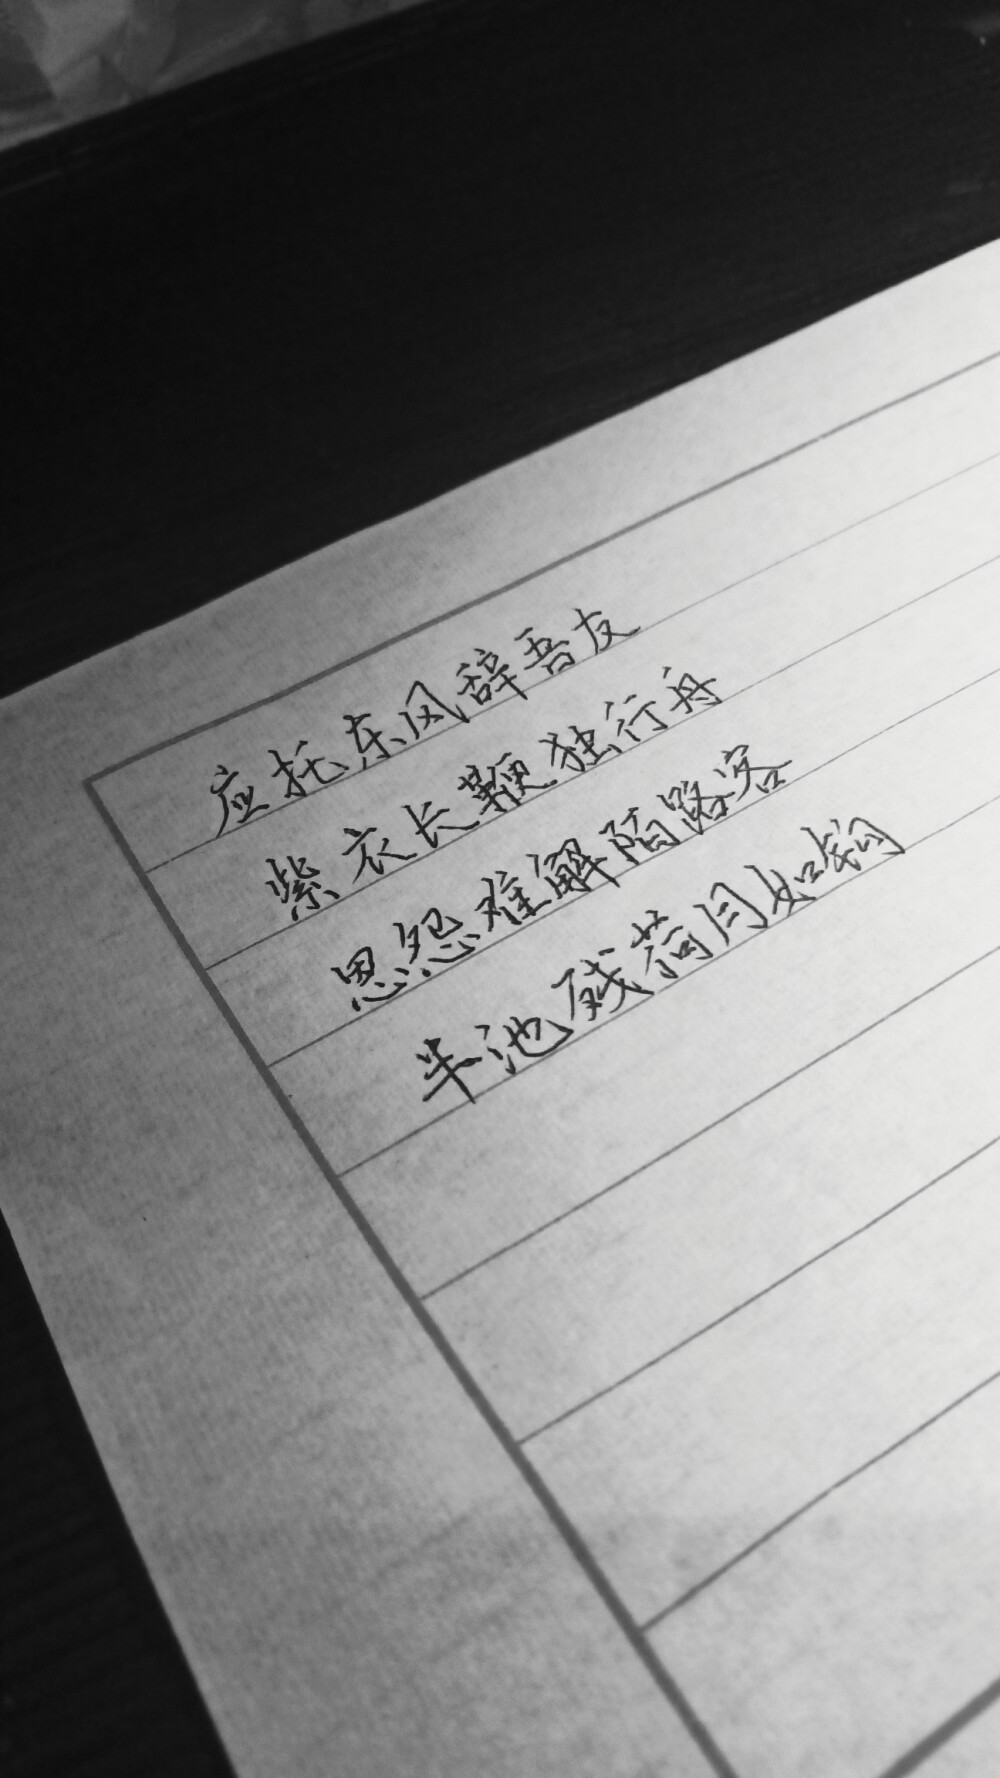 应托东风辞吾友
紫衣长鞭独行舟
恩怨难解陌路客
半池残荷月如钩